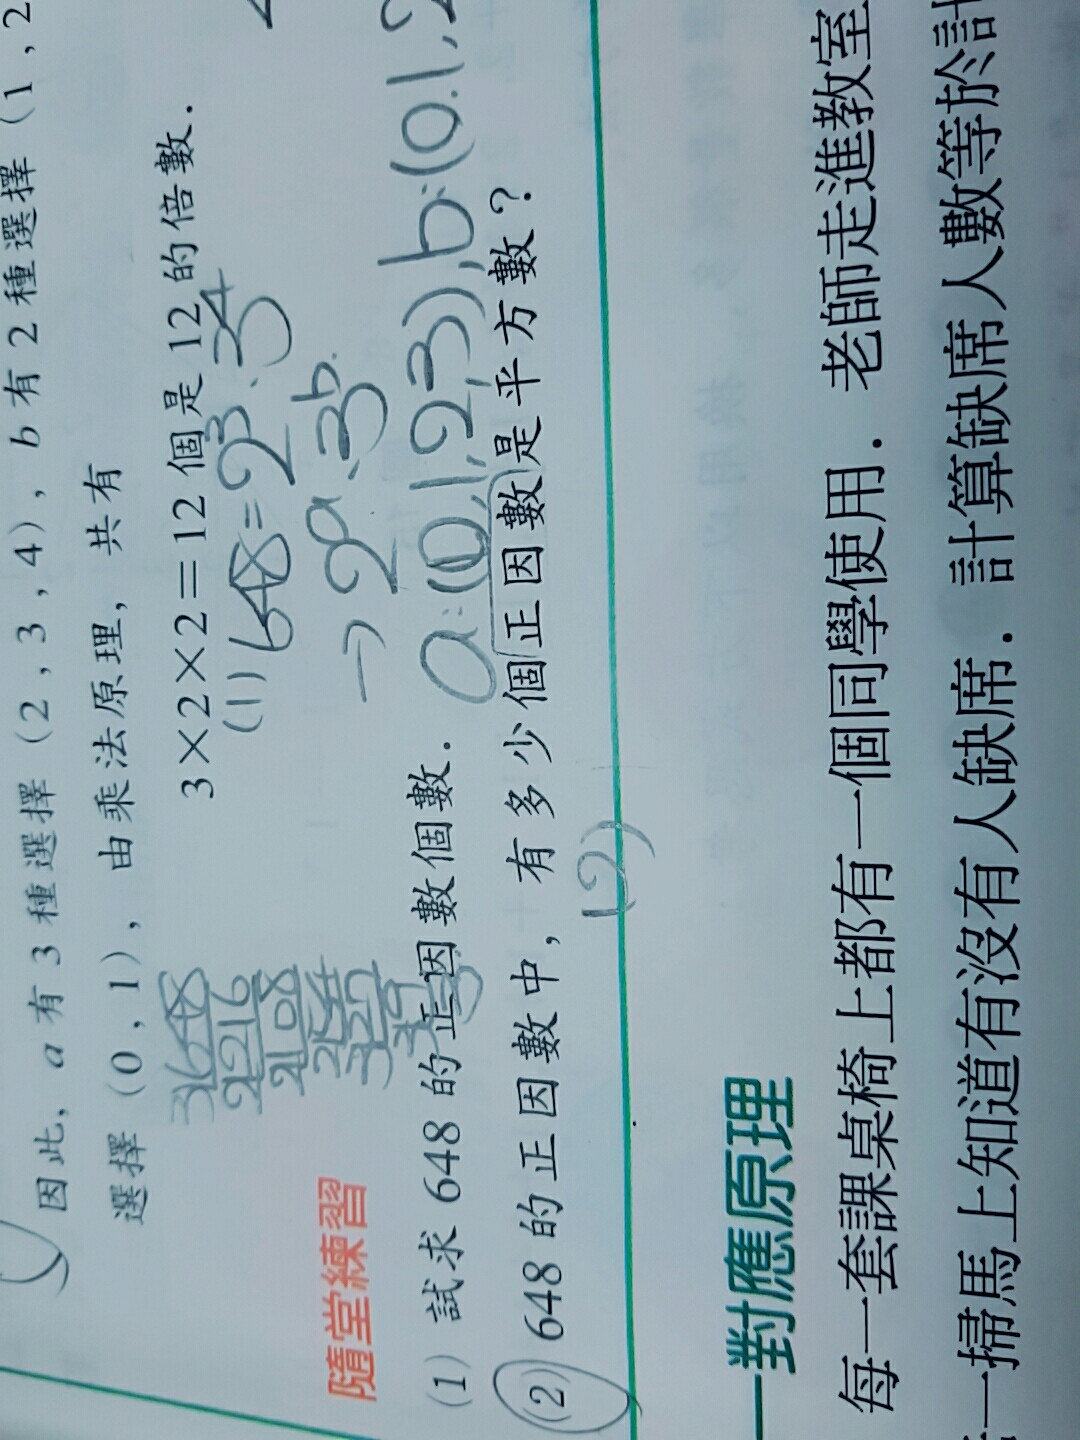 因此, a 有 3 種選擇 (2, 3, 4), b 有 2 種選擇 (1, 2
選擇 (0, 1), 由乘法原理, 共有
3×2×2=12 個是 12 的倍數.
(1) 648=2³·3⁴
→ 2ᵃ·3ᵇ.
a:(0,1,2,3), b:(0.1,2
3 648
2 216
2 108
2 54
3 27
9
隨堂練習
(1) 試求 648 的正因數個數.
(2) 648 的正因數中, 有多少個正因數是平方數?
(2)
一對應原理
每一套課桌椅上都有一個同學使用. 老師走進教室
一掃馬上知道有沒有人缺席. 計算缺席人數等於計